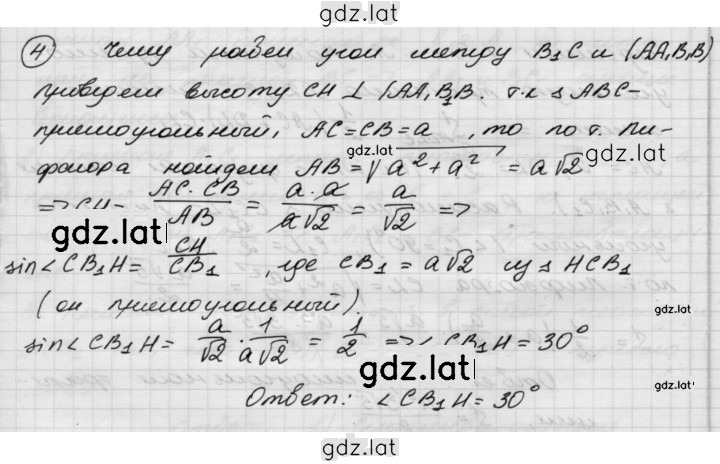 gdz.lat
4) Чему равен угол между B₁C и (AA₁B₁B)
проведем высоту CH ⊥ (AA₁B₁B. т.к ΔABC-
прямоугольный, AC=CB=a, то по т. Пи-
gdz.lat
gdz.lat
фагора найдем AB=√a²+a² = a√2
=> CH- AC·CB/AB = a·a/a√2 = a/√2 =>
gdz.lat
sin∠CB₁H= CH/CB₁, где CB₁=a√2 из Δ HCB₁
(он прямоугольный).
gdz.lat
sin∠CB₁H= a/√2 · 1/a√2 = 1/2 => ∠CB₁H=30°
gdz.lat
gdz.lat
Ответ: ∠CB₁H=30°
gdz.lat